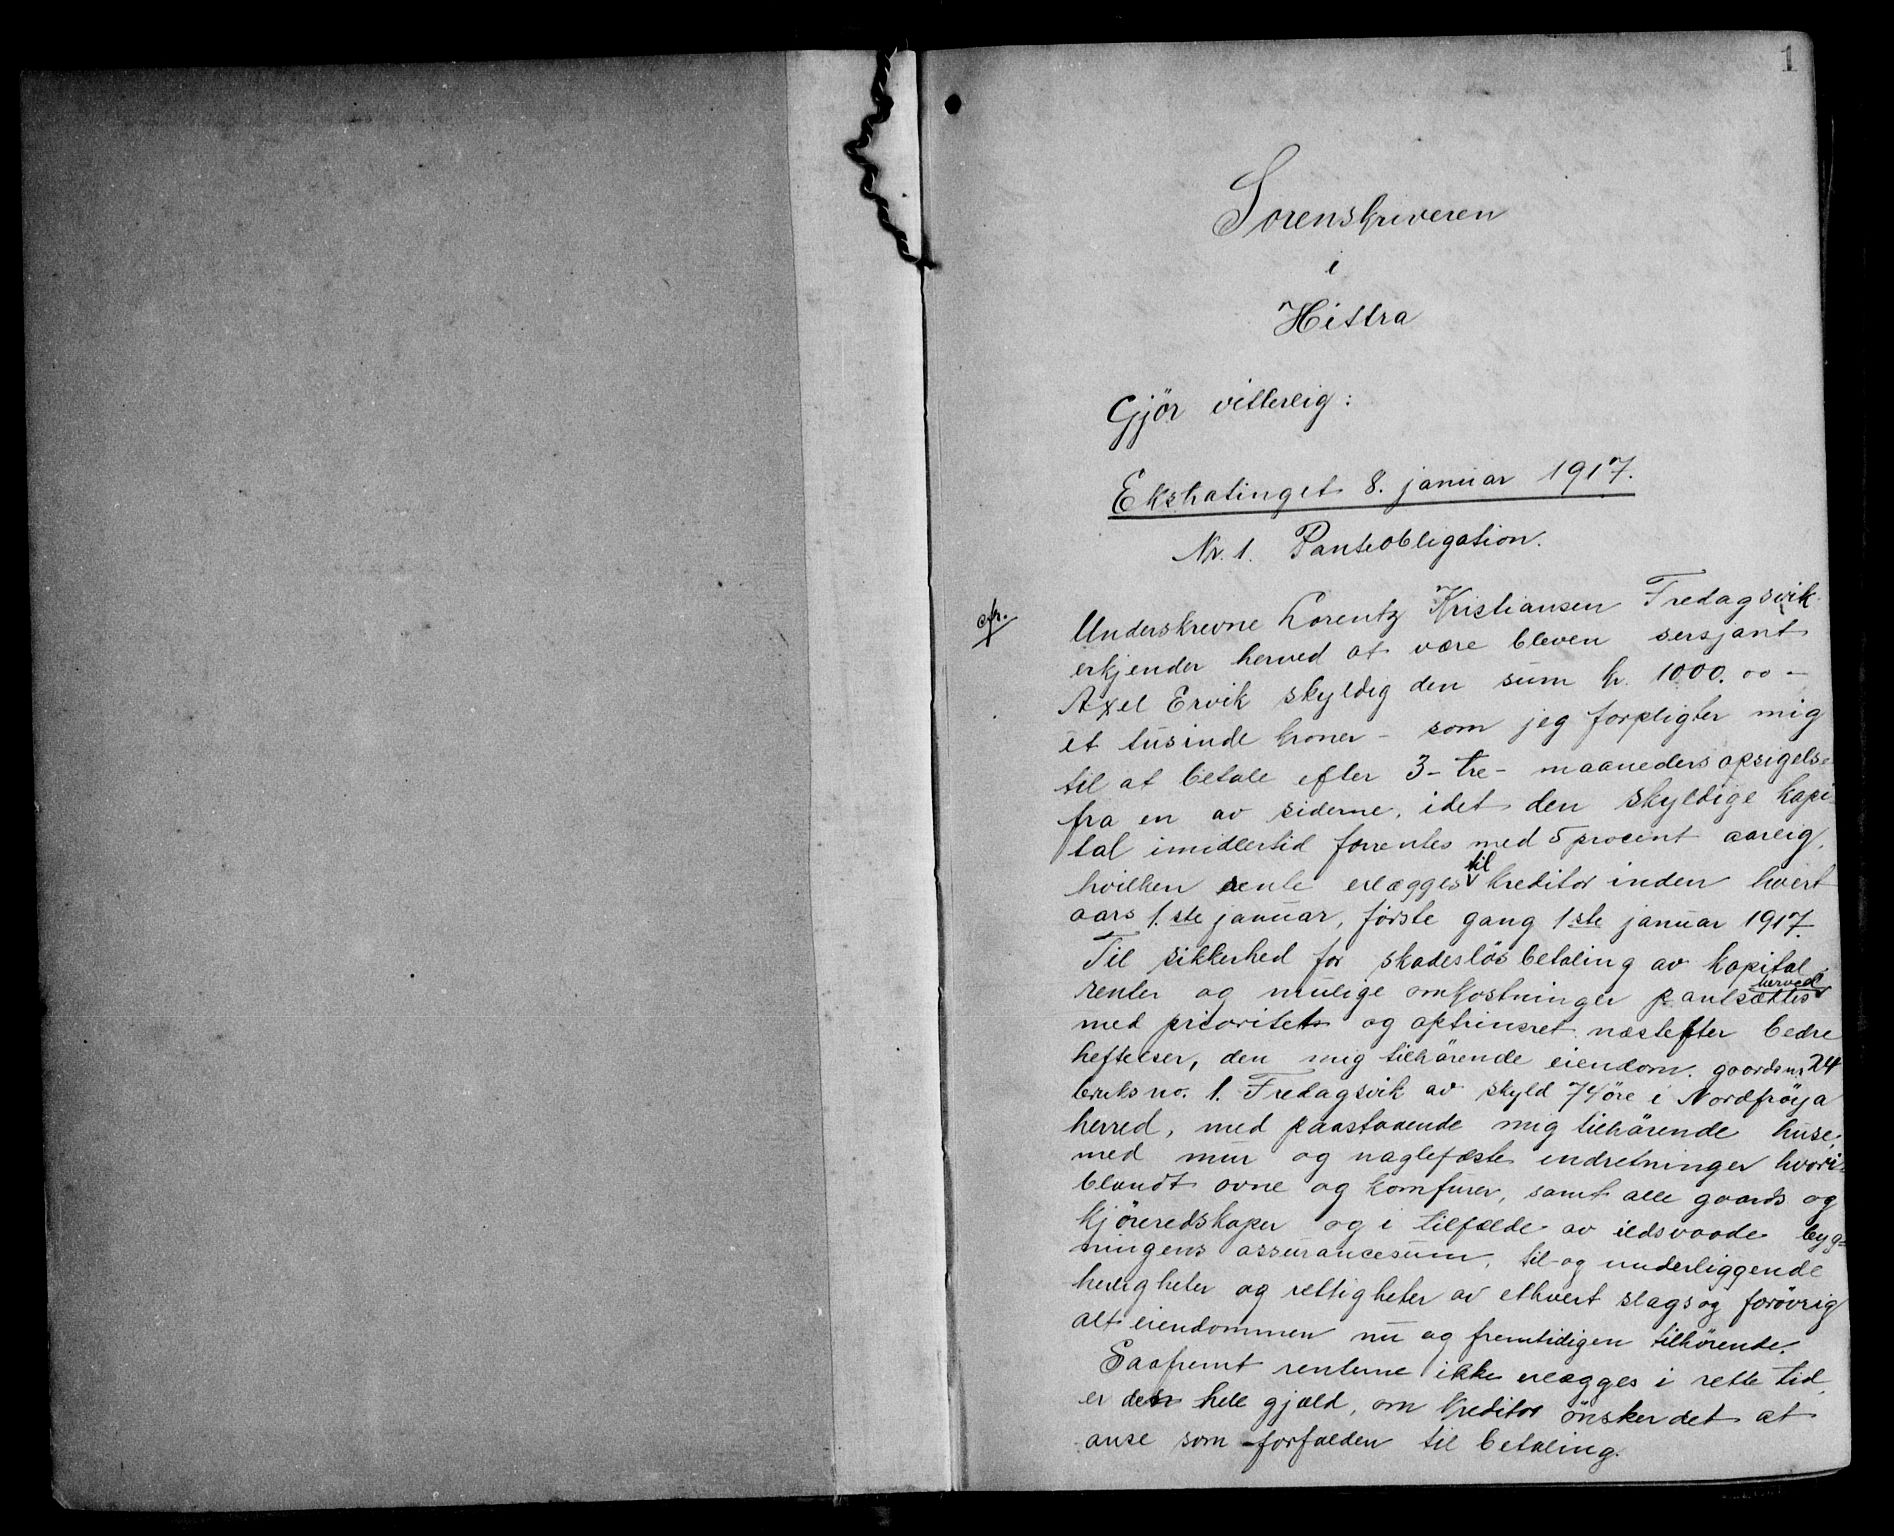 1
Sorenskriveren
i
Hittra
Gjör vitterlig:
Ekstratinget 8. januar 1917.
Nr. 1. Panteobligation.
cfr.
Underskrevne Lorentz Kristiansen Fredagsvik
erkjender herved at være bleven sersjant
Axel Ervik skyldig den sum kr. 1000.00 –
et tusinde kroner – som jeg forpligter mig
til at betale efter 3 – tre – maaneders opsigelse
fra en av siderne, idet den skyldige kapi-
tal imidlertid forrentes med 5 procent aarlig,
hvilken rente erlægges til kreditor inden hvert
aars 1.ste januar, første gang 1ste januar 1917.
Til sikkerhed for skadeslös betaling av kapital,
renter og mulige omkostninger pantsættes herved
med prioritet og optrinsret næstefter bedre
heftelser, den mig tilhörende eiendom gaardsnr 24
bruksno. 1. Fredagsvik av skyld 74 öre i Nordfröya
herred, med paastaaende mig tilhörende huse,
med mur og naglefæste indretninger hvori-
blandt ovne og komfurer, samt alle gaards og
kjöreredskaper og i tilfælde av ildsvaade byg=
ningens assurancesum, til- og underliggende
herligheter og rettigheter av ethvert slags og forövrig
alt eiendommen nu og fremtidigen tilhörende.
Saafremt renterne ikke erlægges i rette tid,
er den hele gjæld, om kreditor önsker det at
anse som forfalden til betaling.